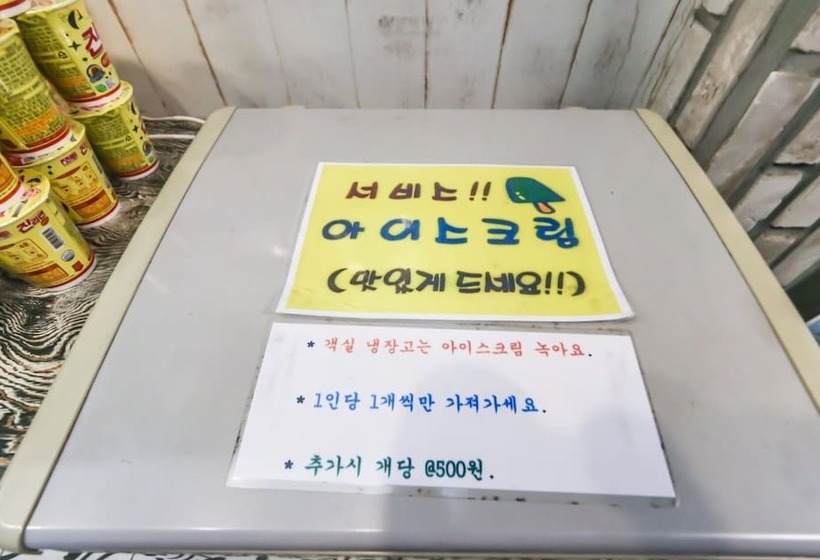 서비스!!
아이스크림
(맛있게 드세요!!)
* 객실 냉장고는 아이스크림 녹아요.
* 1인당 1개씩만 가져가세요.
* 추가시 개당 @500원.